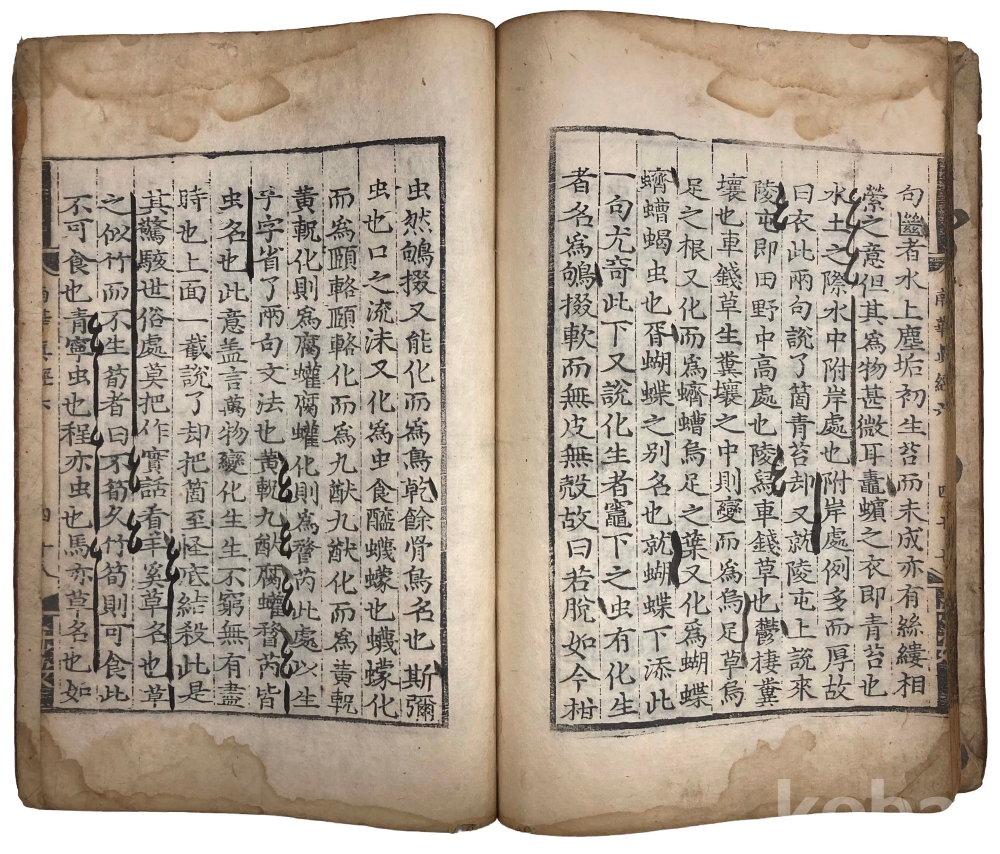 句㡭者水上塵垢初生苔而未成亦有絲縷相
縈之意但其爲物甚微耳鼃蠙之衣即青苔也
水土之際水中附岸處也附岸處例多而厚故
曰衣此兩句說了箇青苔却又就陵屯上說來
陵屯即田野中高處也陵舃車錢草也鬱棲糞
壤也車錢草生糞壤之中則變而爲烏足草烏
足之根又化而爲蠐螬烏足之葉又化爲蝴蝶
蠐螬蝎虫也胥蝴蝶之別名也就蝴蝶下添此
一句尤奇此下又說化生者竈下之虫有化生
者名爲鴝掇軟而無皮無殼故曰若脫如今柑
虫然鴝掇又能化而爲鳥乾餘骨鳥名也斯彌
虫也口之流沫又化爲虫食醯蠛蠓也蠛蠓化
而爲頤輅頤輅化而爲九猷九猷化而爲黃軦
黃軦化則爲腐蠸腐蠸化則爲瞀芮此處以生
乎字省了兩句文法也黃軦九猷腐蠸瞀芮皆
虫名也此意盖言萬物變化生生不窮無有盡
時也上面一截說了却把箇至怪底結殺此是
其驚駭世俗處莫把作實話看羊奚草名也草
之似竹而不生荀者曰不荀久竹荀則可食此
不可食也青寧虫也程亦虫也馬亦草名也如
南華眞經六
四十八